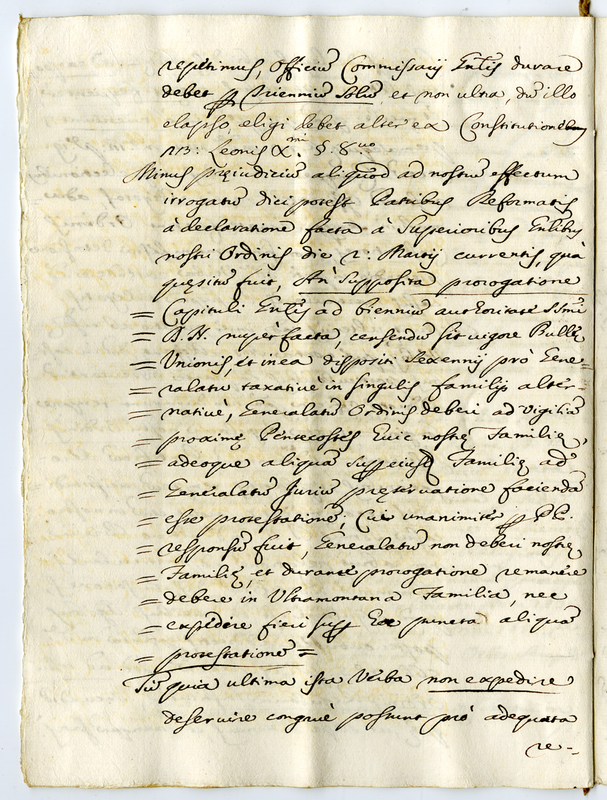 repetimus, officiũ Commissarij Gnlis durare
debet p Trienniũ solũ, et non ultra, dũ illo
elapso, eligi debet alter ex Constitutione
113: Leonis X.mi §. 8.uo
Minus pręiudiciũ aliquod ad nostrũ effectum
irrogatũ dici potest Patribus Reformatis
à declaratione facta à Superioribus Gnlibus
nostri Ordinis die 2. Martij currentis, quà
quęsitũ fuit, An supposita prorogatione
= Capituli Gnlis ad bienniũ authoritate SSmi
= D. N. nupèr facta, censendũ sit vigore Bullę
= Unionis, et in ea dispositi Sexennij prò Gene=
= ralatu taxative in singulis familijs alter=
= nativè, Generalatũ Ordinis deberi ad Vigiliã
= proximę Pentecostes huic nostrę Familię,
= adeoque aliquã Familię ad
= Generalatũ Juriũ pręservatione faciendã
= esse protestationẽ; Cui unanimitẽ p PP.
= responsũ fuit, Generalatũ non deberi nostrę
= Familię, et durante prorogatione remanere
= debere in Ultramontana Familia, nec
= expedire fieri sup hoc puncto aliquã
= protestationẽ =
Tũ quia ultima ista verba non expedire
deservire congruè possunt prò adequata
re-